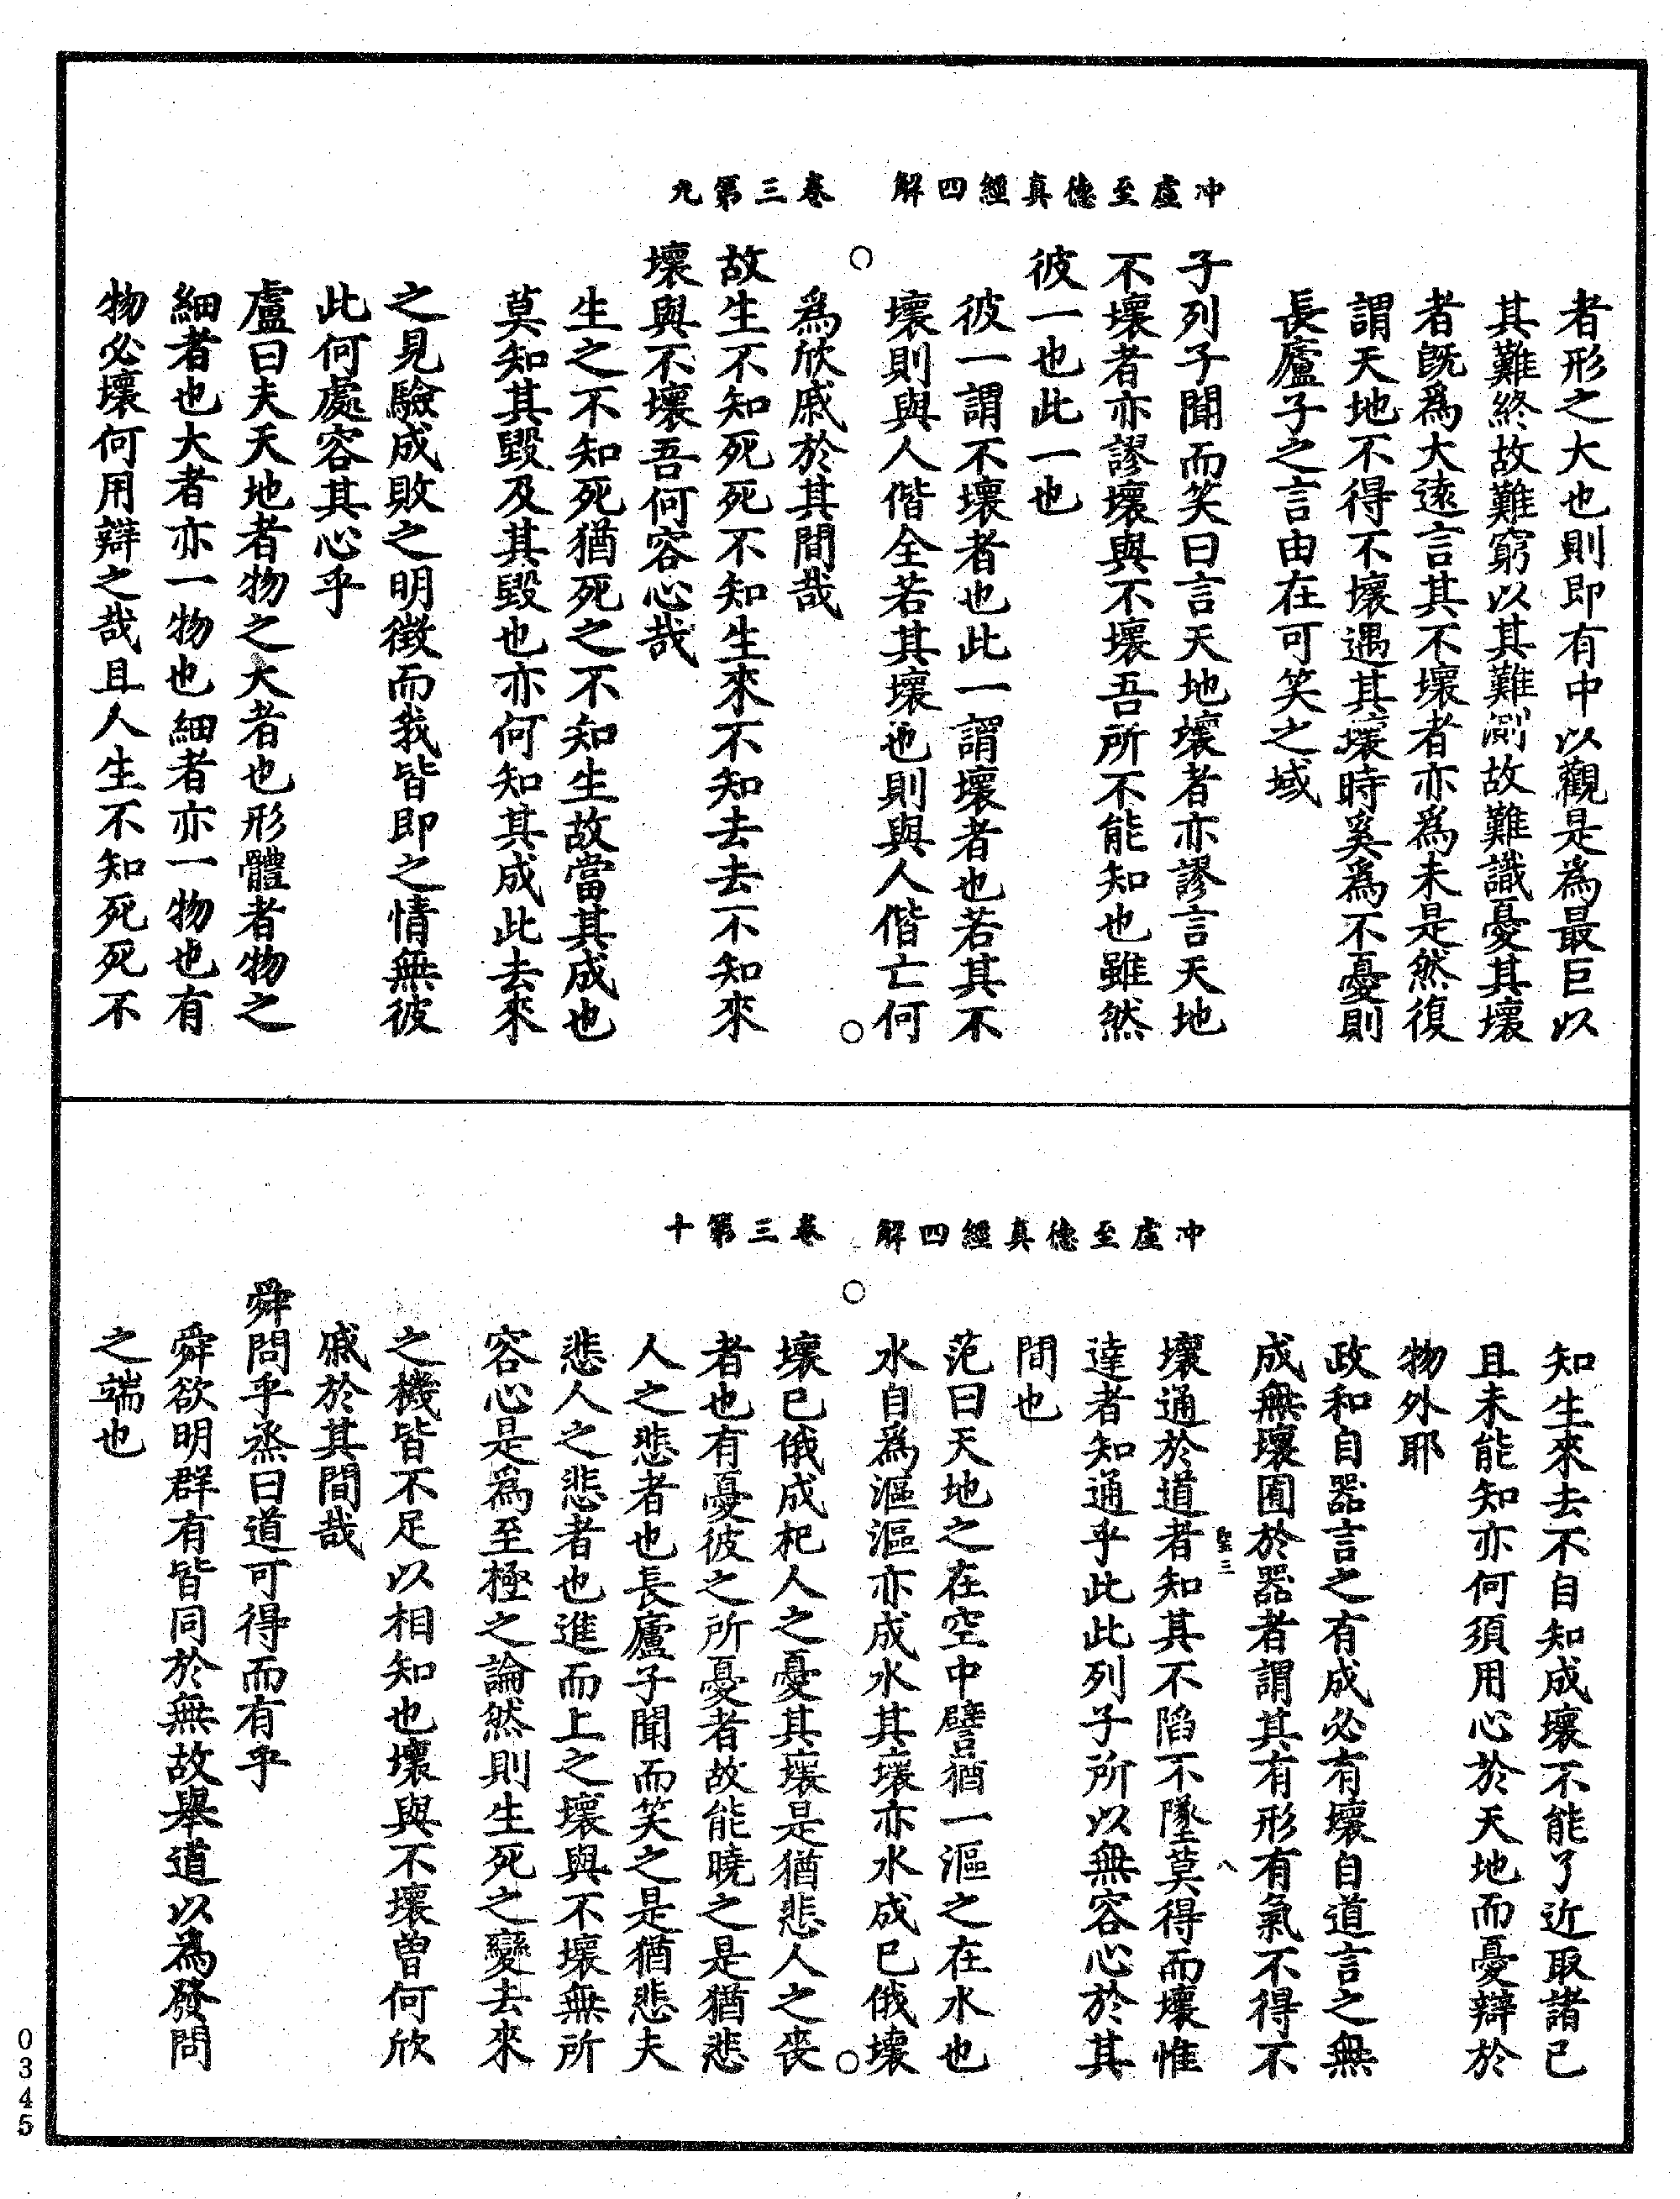 冲虚至德真經四解　卷三第九
者形之大也則即有中以觀是為最巨以
其難終故難窮以其難測故難識憂其壞
者旣為大遠言其不壞者亦為未是然復
謂天地不得不壞遇其壞時奚為不憂則
長廬子之言由在可笑之域
子列子聞而笑曰言天地壞者亦謬言天地
不壞者亦謬壞與不壞吾所不能知也雖然
彼一也此一也
彼一謂不壞者也此一謂壞者也若其不
壞則與人偕全若其壞也則與人偕亡何
為欣戚於其間哉
故生不知死死不知生來不知去去不知來
壞與不壞吾何容心哉
生之不知死猶死之不知生故當其成也
莫知其毀及其毀也亦何知其成此去來
之見驗成敗之明徵而我皆即之情無彼
此何處容其心乎
盧曰夫天地者物之大者也形體者物之
細者也大者亦一物也細者亦一物也有
物必壞何用辯之哉且人生不知死死不
冲虚至德真經四解　卷三第十
知生來去不自知成壞不能了近取諸己
且未能知亦何須用心於天地而憂辯於
物外耶
政和自器言之有成必有壞自道言之無
成無壞囿於器者謂其有形有氣不得不
壞通於道者知其不陷不墜莫得而壞惟
達者知通乎此此列子所以無容心於其
間也
范曰天地之在空中譬猶一漚之在水也
水自為漚漚亦成水其壞亦水成已俄壞
壞已俄成杞人之憂其壞是猶悲人之喪
者也有憂彼之所憂者故能曉之是猶悲
人之悲者也長廬子聞而笑之是猶悲夫
悲人之悲者也進而上之壞與不壞無所
容心是為至極之論然則生死之變去來
之機皆不足以相知也壞與不壞曾何欣
戚於其間哉
舜問乎烝曰道可得而有乎
舜欲明群有皆同於無故舉道以為發問
之端也
0345